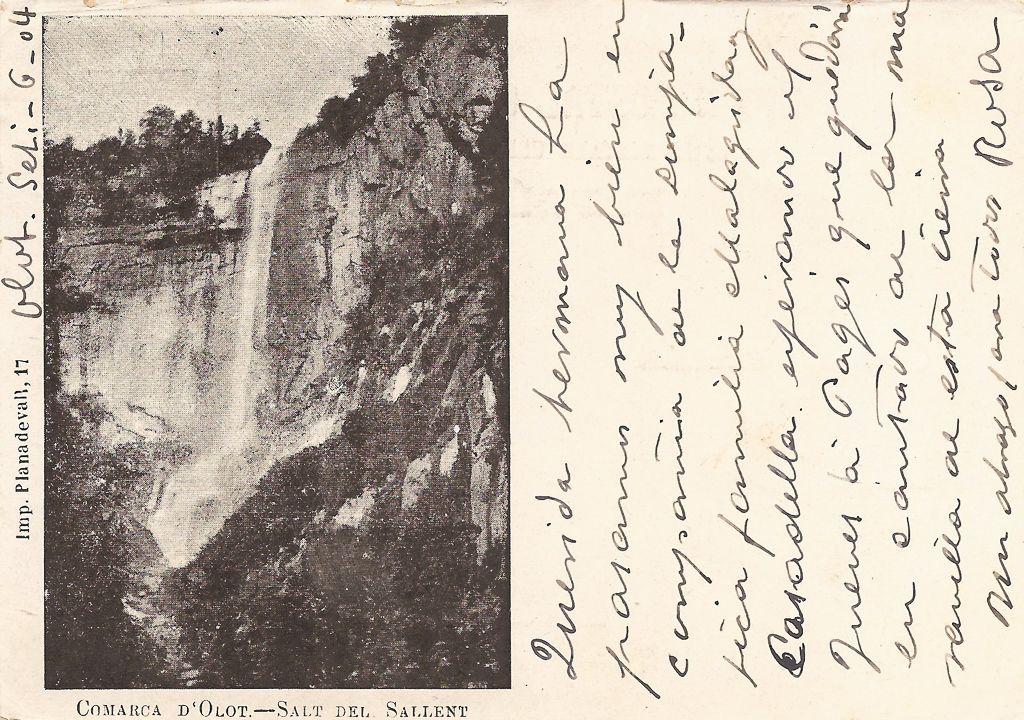 Olot. Set.-6-04
Imp. Planadevall, 17
COMARCA D'OLOT.—SALT DEL SALLENT
Querida hermana La
pasamos muy bien en
compañia de la simpa-
tica familia Malagrida y
Casadella. esperamos el
Jueves á Pages que quedára
en cantado de las ma
ravilla de esta tierra
un abrazo para todos Rosa